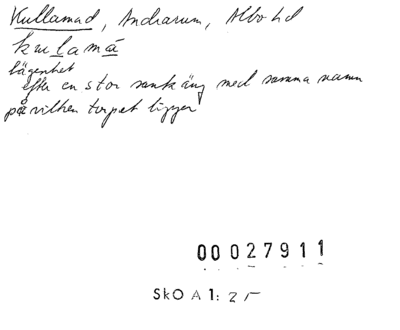 Kullamad, Andrarum, Albo hd
kulamá
lägenhet
efter en stor sankäng med samma namn
på vilken torpet ligger
00027911
SkO A 1: 25